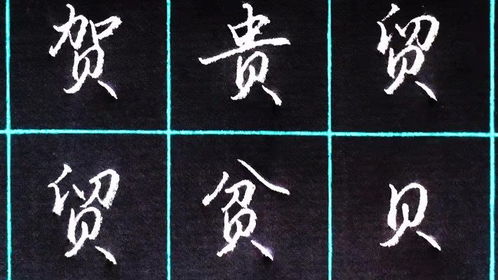 贺贵贸
贸贫贝